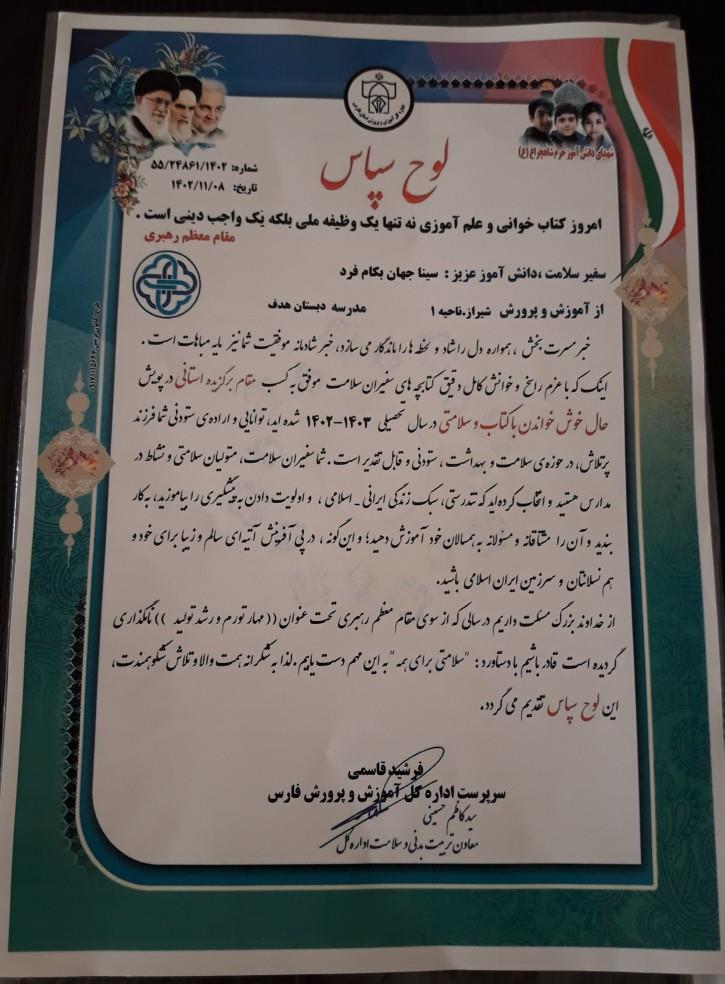 شهدای دانش آموز حرم شاهچراغ (ع)
لوح سپاس
شماره: ۵۵/۲۴۸۶۱/۱۴۰۲
تاریخ: ۱۴۰۲/۱۱/۰۸
امروز کتاب خوانی و علم آموزی نه تنها یک وظیفه ملی بلکه یک واجب دینی است .
مقام معظم رهبری
سفیر سلامت ،دانش آموز عزیز : سینا جهان بکام فرد
از آموزش و پرورش شیراز.ناحیه ۱ مدرسه دبستان هدف
خبر مسرت بخش ، همواره دل را شاد و لحظه ها را ماندگار می سازد، خبر شادمانه موفقیت شما نیز مایه مباهات است .
اینک که با عزم راسخ و خوانش کامل دقیق کتابچه های سفیران سلامت موفق به کسب مقام برگزیده استانی در پویش
حال خوش خواندن با کتاب و سلامتی در سال تحصیلی ۱۴۰۳-۱۴۰۲ شده اید، توانایی و اراده ی ستودنی شما فرزند
پرتلاش، در حوزه ی سلامت و بهداشت ، ستودنی و قابل تقدیر است . شما سفیران سلامت، متولیان سلامتی و نشاط در
مدارس هستید و انتخاب کرده اید که تندرستی، سبک زندگی ایرانی ـ اسلامی ، و اولویت دادن به پیشگیری را بیاموزید، به کار
بندید و آن را مشتاقانه و مسئولانه به همسالان خود آموزش دهید؛ و این گونه ، در پی آفرینش آتیه ای سالم و زیبا برای خود و
هم نسلانتان و سرزمین ایران اسلامی باشید.
از خداوند بزرگ مسئلت داریم در سالی که از سوی مقام معظم رهبری تحت عنوان ((مهار تورم و رشد تولید )) نامگذاری
گردیده است قادر باشیم با دستاورد : "سلامتی برای همه" به این مهم دست یابیم .لذا به شکرانه همت والا و تلاش شکوهمندت،
این لوح سپاس تقدیم می گردد.
فرشید قاسمی
سرپرست اداره کل آموزش و پرورش فارس
سید کاظم حسینی
معاون تربیت بدنی و سلامت اداره کل